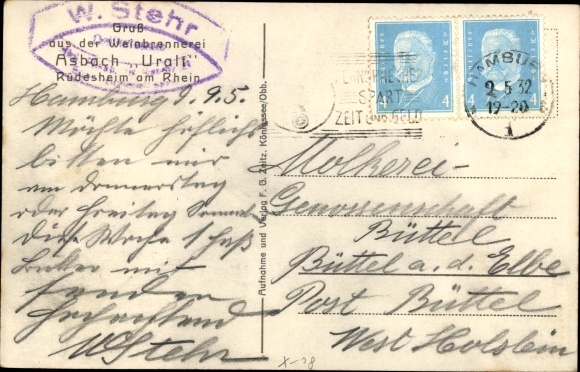 W. Stehr
Gruß
aus der Weinbrennerei
Asbach „Uralt“
Rüdesheim am Rhein
Hamburg 9.9.5.
Möchte höflichst
bitten mir
am Donnerstag
oder Freitag
diese Woche 1 Faß
Butter mit
senden
Hochachtend
W Stehr
Aufnahme und Verlag F. G. Zeitz, Königsee/Obb.
FERNSPRECHEN
SPART
ZEIT UND GELD
4
4
HAMBURG
2.5.32
19-20
1
Molkerei-
Genossenschaft
Büttel
Büttel a. d. Elbe
Post Büttel
West Holstein